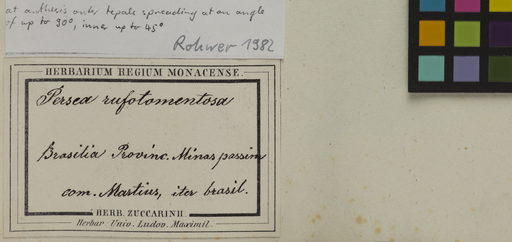 at anthesis outer tepals spreading at an angle
of up to 90°, inner up to 45°
Rohwer 1982
HERBARIUM REGIUM MONACENSE.
Persea rufotomentosa
Brasilia Provinc. Minas passim
com. Martius, iter brasil.
HERB. ZUCCARINII
Herbar. Univ. Ludov. Maximil.